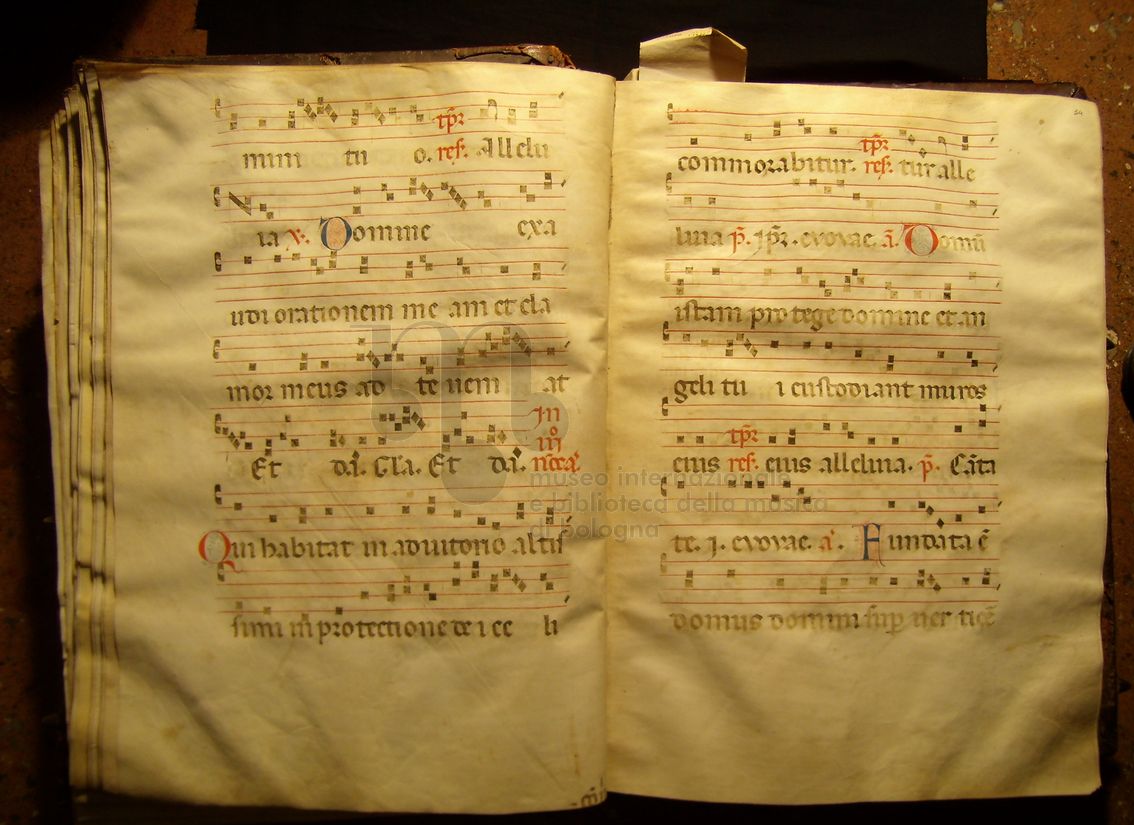 mini tu o. tp̄r
res. Allelu
ia ℣. Domine exa
udi orationem me am et cla
mor meus ad te veniat
Et
Gl̄a. Et
Qui habitat in adiutorio altis
simi in protectione dei celi
24
commorabitur. tp̄r
res. tur alle
luia p̄. ip̄r. evovae. ā. Domū
istam protege domine et an
geli tu i custodiant muros
eius tp̄r
res. eius alleluia. p̄. Cāta
te. i. evovae. ā. Fundata ē
domus domini sup̄ ver ticē
museo internazionale
e biblioteca della musica
di bologna